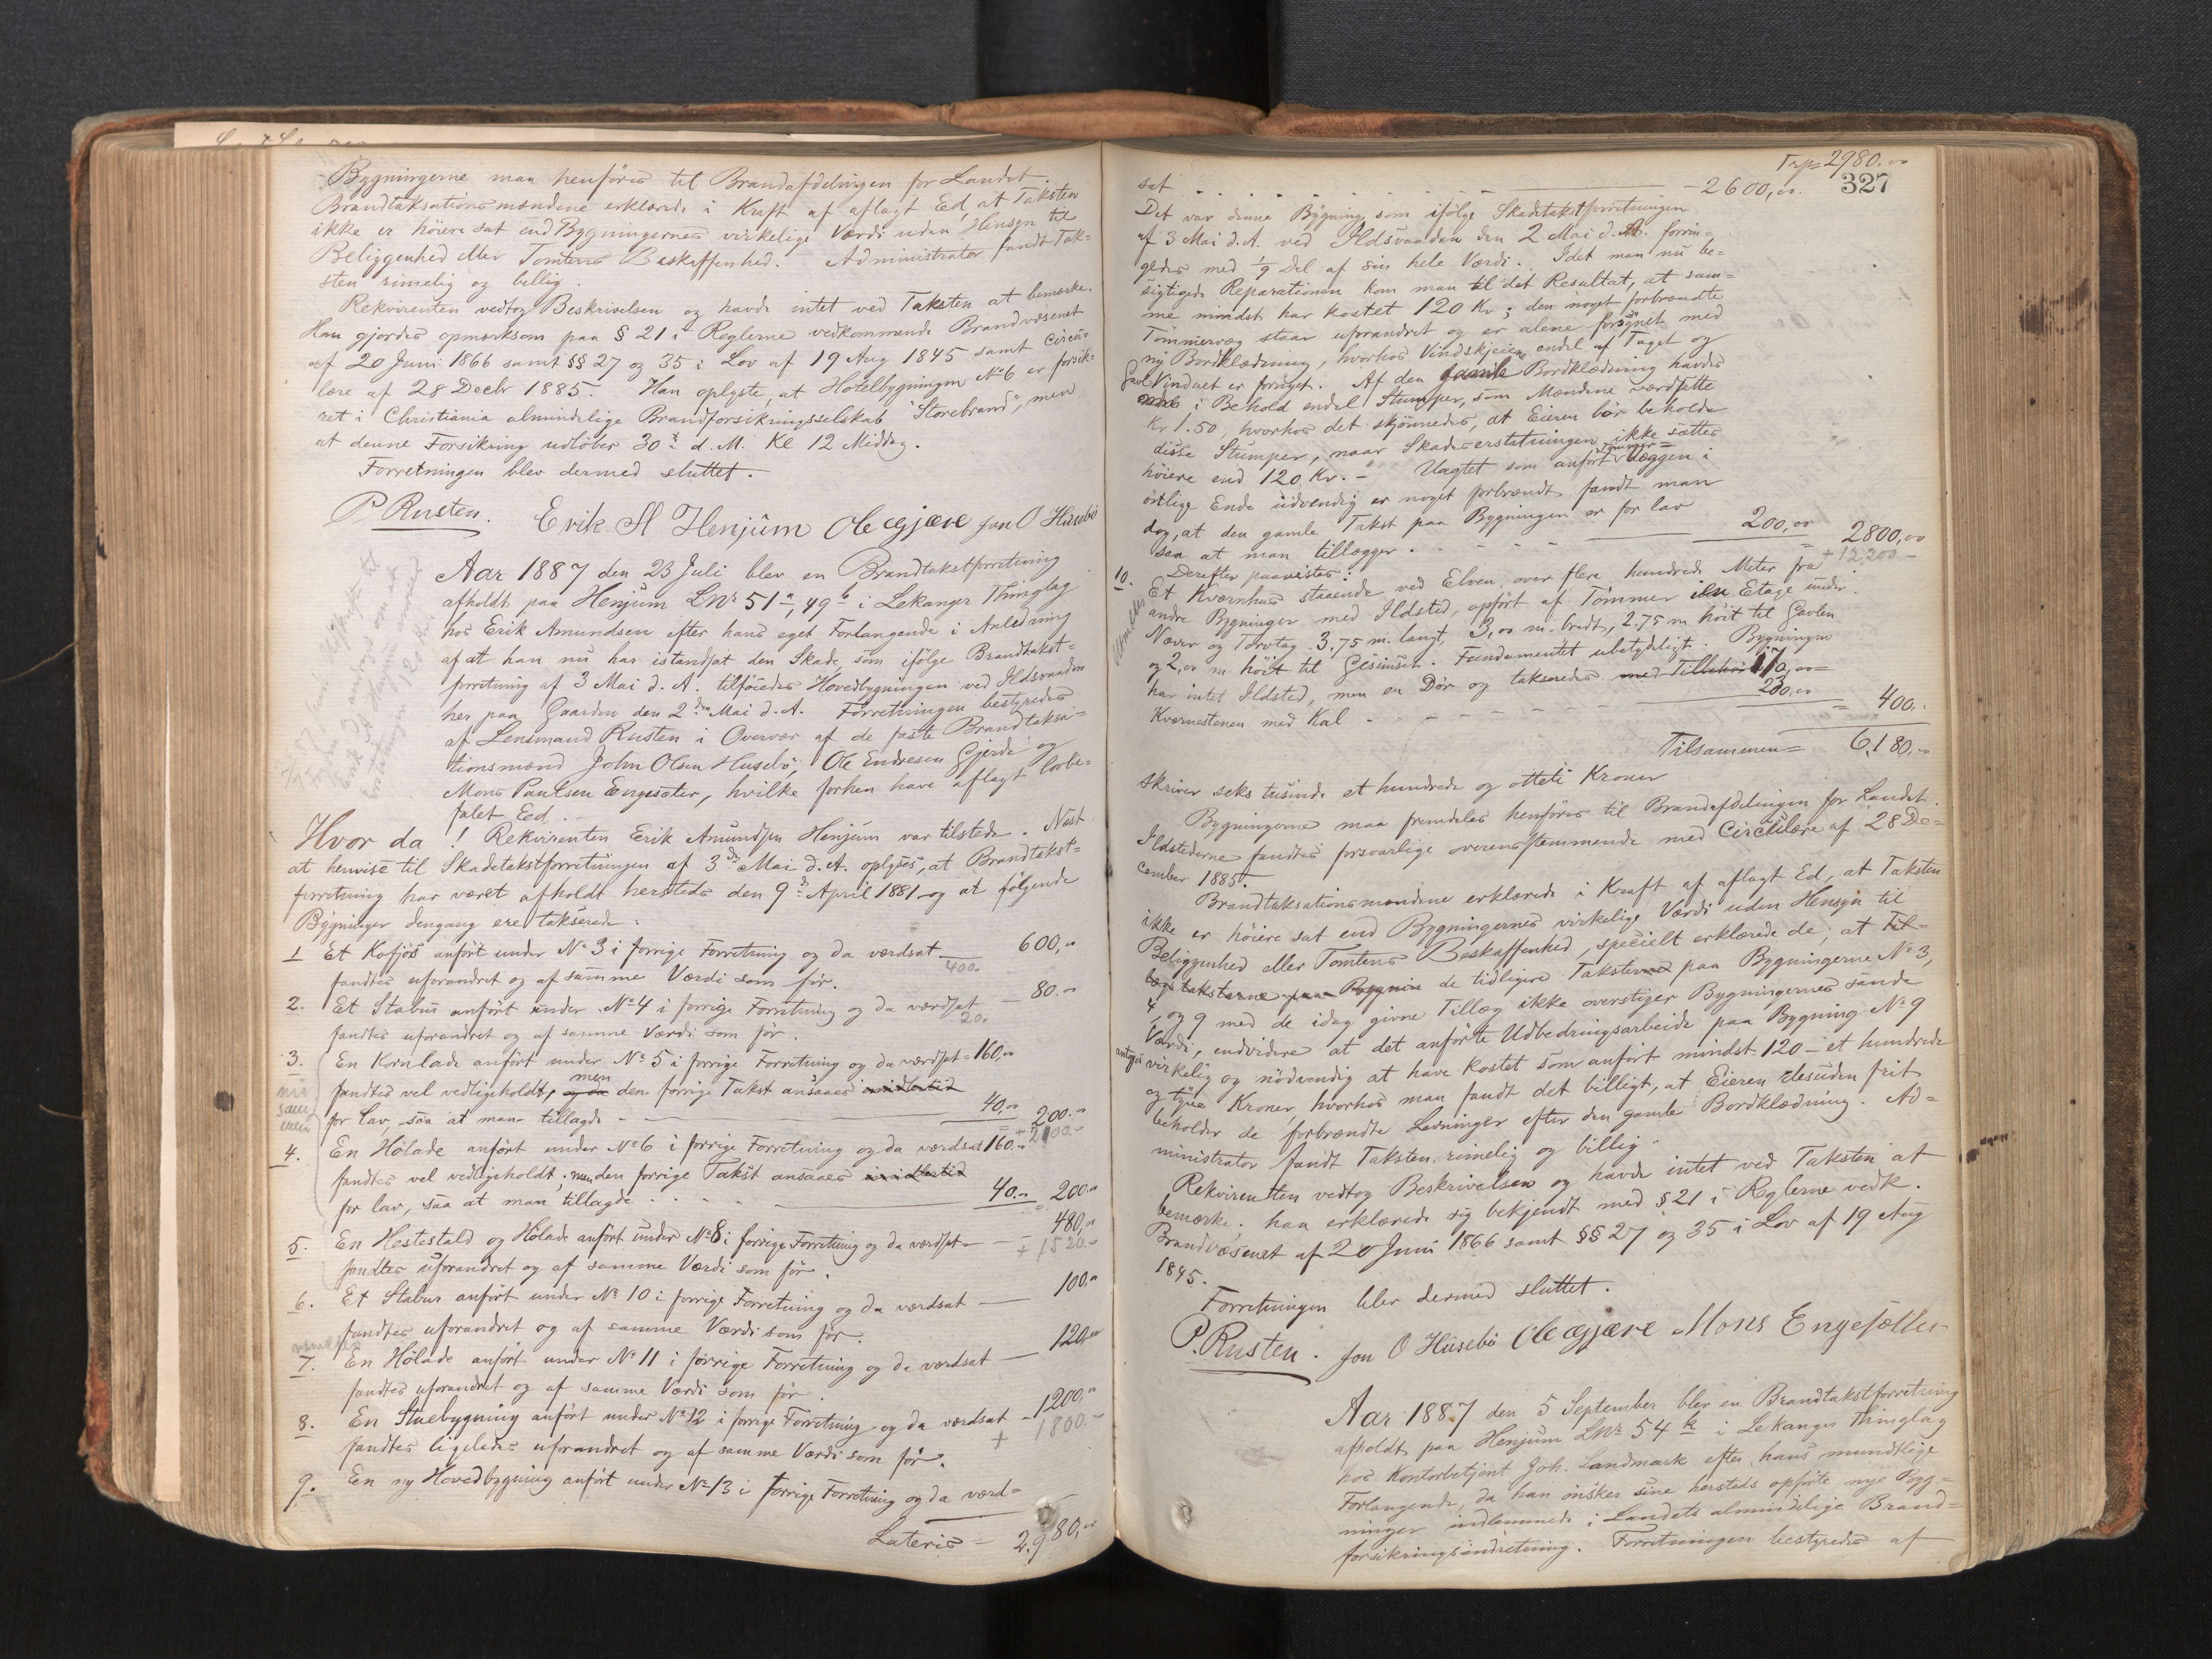 Bygningerne maa henføres til Brandafdelingen for Landet.
Brandtaksationsmændene erklærede i Kraft af aflagt Ed, at Taksten
ikke er høiere sat end Bygningernes virkelige Værdi uden Hensyn til
Beliggenhed eller Tomtens Beskaffenhed. Administrator fandt Tak=
sten rimelig og billig.
Rekvirenten vedtog Beskrivelsen og havde intet ved Taksten at bemærke.
Han gjordes opmærksom paa § 21 i Reglerne vedkommende Brandvæsenet
af 20 Juni 1866 samt §§ 27 og 35 i Lov af 19 Aug 1845 samt Circu=
lære af 28 Decbr 1885. Han oplyste, at Hotelbygningen No 6 er forsik=
ret i Christiania almindelige Brandforsikringsselskab "Storebrand", men
at denne Forsikring udløber 30te d. M. Kl 12 Middag.
Forretningen blev dermed sluttet.
P Rusten. Erik A Henjum Ole Gjære Jon O Husebø
Aar 1887 den 23 Juli blev en Brandtakstforretning
afholdt paa Henjum LNr 51a, 49b i Lekanger Thinglag
hos Erik Amundsen efter hans eget Forlangende i Anledning
af at han nu har istandsat den Skade, som ifølge Brandtakst=
forretning af 3 Mai d. A. tilføiedes Hovedbygningen ved Ildsvaaden
her paa Gaarden den 2den Mai d. A. Forretningen bestyredes
af Lensmand Rusten i Overvær af de faste Brandtaksa=
tionsmænd John Olsen Husebø, Ole Endresen Gjerde og
Mons Paulsen Engesæter, hvilke forhen have aflagt lovbe=
falet Ed.
Hvor da! Rekvirenten Erik Amundsen Henjum var tilstede. Næst
at henvise til Skadetakstforretningen af 3de Mai d. A. oplyses, at Brandtakst=
forretning har været afholdt hersteds den 9de April 1881 og at følgende
Bygninger dengang ere takserede:
1 Et Kofjøs anført under No 3 i forrige Forretning og da værdsat 600,00
fandtes uforandret og af samme Værdi som før. 400.
2. Et Stabur anført under No 4 i forrige Forretning og da værdsat — 80.00
fandtes uforandret og af samme Værdi som før. 20.
3. En Kornlade anført under No 5 i forrige Forretning og da værdsat = 160,00
fandtes vel vedligeholdt, og da men den forrige Takst ansaaes imidlertid
for lav, saa at man tillagde 40,00 = 200.00
+ 2100.-
4. En Hølade anført under No 6 i forrige Forretning og da værdsat 160.00
fandtes vel vedligeholdt; men den forrige Takst ansaaes imidlertid
for lav, saa at man tillagde 40.00 = 200.00
5. En Hestestald og Hølade anført under No 8 i forrige Forretning og da værdsat — 480,00
fandtes uforandret og af samme Værdi som før. + 1520.-
6. Et Stabur anført under No 10 i forrige Forretning og da værdsat — 100.00
fandtes uforandret og af samme Værdi som før.
7. En Hølade anført under No 11 i forrige Forretning og da værdsat — 120.00
fandtes uforandret og af samme Værdi som før.
8. En Stuebygning anført under No 12 i forrige Forretning og da værdsat - 1200,00
fandtes ligeledes uforandret og af samme Værdi som før. + 1800.-
9. En ny Hovedbygning anført under No 13 i forrige Forretning og da værd=
Lateris = 2980,00
Trp= 2980.00
327
sat - 2600,00.
Det var denne Bygning som ifølge Skadetakstforretningen
af 3 Mai d. A. ved Ildsvaaden den 2 Mai d. A. forrin=
gedes med 1/9 Del af sin hele Værdi. Idet man nu be=
sigtigede Reparationen kom man til det Resultat, at sam=
me mindst har kostet 120 Kr; den noget forbrændte
Tømmervæg staar uforandret og er alene forsynet med
ny Bordklædning, hvorhos Vindskjeier, endel af Taget og
Gavlvinduet er fornyet. Af den gamle Bordklædning havdes
i Behold endel Stumper, som Mændene værdsatte
Kr 1.50, hvorhos det skjønnedes, at Eieren bør beholde
disse Stumper, naar Skadeserstatningen ikke sættes
høiere end 120 Kr. - Uagtet som anført Tømmer=væggen i
østlige Ende udvendig er noget forbrændt fandt man
dog, at den gamle Takst paa Bygningen er for lav
saa at man tillægger 200,00 = 2800,00
+ 12,200 -
Derefter paavistes:
10. Et Kværnhus staaende ved Elven over flere hundrede Meter fra
andre Bygninger med Ildsted, opført af Tømmer en Etage under
Næver og Torvtag 3,75 m. langt, 3,00 m. bredt, 2.75 m høit til Gavlen
og 2,00 m høit til Gesimsen. Fundamentet ubetydeligt. Bygningen
har intet Ildsted, men en Dør og takseredes med Tilbehør 170,00
Kværnestenen med Kal 230,00 = 400.
Tilsammen = 6,180.00
skriver seks tusinde et hundrede og otteti Kroner
Bygningerne maa fremdeles henføres til Brandafdelingen for Landet.
Ildstederne fandtes forsvarlige overensstemmende med Circulære af 28 De=
cember 1885.
Brandtaksationsmændene erklærede i Kraft af aflagt Ed, at Taksten
ikke er høiere sat end Bygningernes virkelige Værdi uden Hensyn til
Beliggenhed eller Tomtens Beskaffenhed, specielt erklærede de, at Til-
lægstaksterne paa Bygnin de tidligere Takster paa Bygningerne No 3,
4, og 9 med de idag givne Tillæg ikke overstiger Bygningernes sande
Værdi, endvidere at det anførte Udbedringsarbeide paa Bygning No 9
antages virkelig og nødvendig at have kostet som anført mindst 120 - et hundrede
og tyve Kroner, hvorhos man fandt det billigt, at Eieren desuden frit
beholder de forbrændte Levninger efter den gamle Bordklædning. Ad=
ministrator fandt Taksten rimelig og billig.
Rekvirenten vedtog Beskrivelsen og havde intet ved Taksten at
bemærke. han erklærede sig bekjendt med § 21 i Reglerne vedk.
Brandvæsenet af 20 Juni 1866 samt §§ 27 og 35 i Lov af 19 Aug
1845.
Forretningen blev dermed sluttet.
P. Rusten. Jon O Husebø Ole Gjære Mons Engesætter
Aar 1887 den 5 September blev en Brandtakstforretning
afholdt paa Henjum LNr 54 i Lekanger Thinglag
hos Kontorbetjent Joh. Landmark efter hans mundtlige
Forlangende, da han ønsker sine hersteds opførte nye Byg=
ninger indlemmede i Landets almindelige Brand=
forsikringsindretning. Forretningen bestyredes af